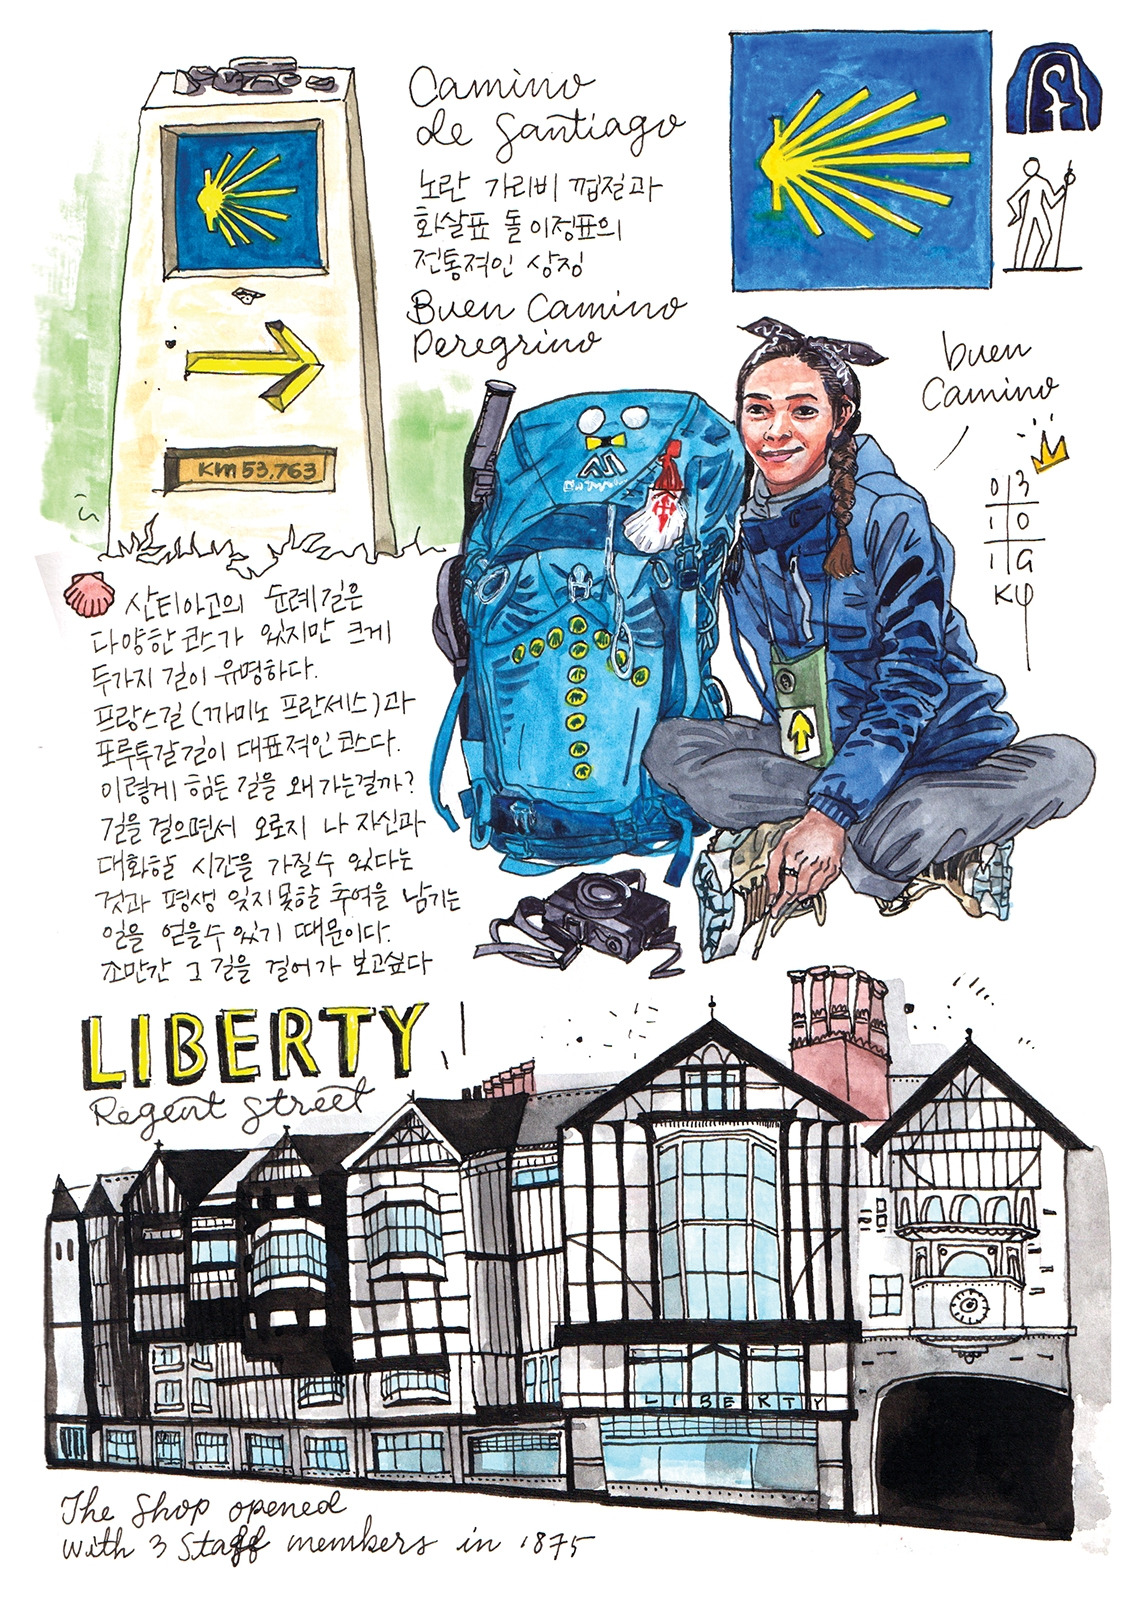 Camino
de Santiago
노란 가리비 껍질과
화살표 돌 이정표의
전통적인 상징
Buen Camino
Peregrino
KM 53,763
buen
Camino
03
10
1G
Kψ
산티아고의 순례길은
다양한 코스가 있지만 크게
두가지 길이 유명하다.
프랑스길 (까미노 프란세스)과
포루투갈길이 대표적인 코스다.
이렇게 힘든 길을 왜 가는걸까?
길을 걸으면서 오로지 나 자신과
대화할 시간을 가질수 있다는
것과 평생 잊지못할 추억을 남기는
일을 얻을수 있기 때문이다.
조만간 그 길을 걸어가 보고싶다
LIBERTY
Regent Street
LIBERTY
The Shop opened
with 3 Staff members in 1875